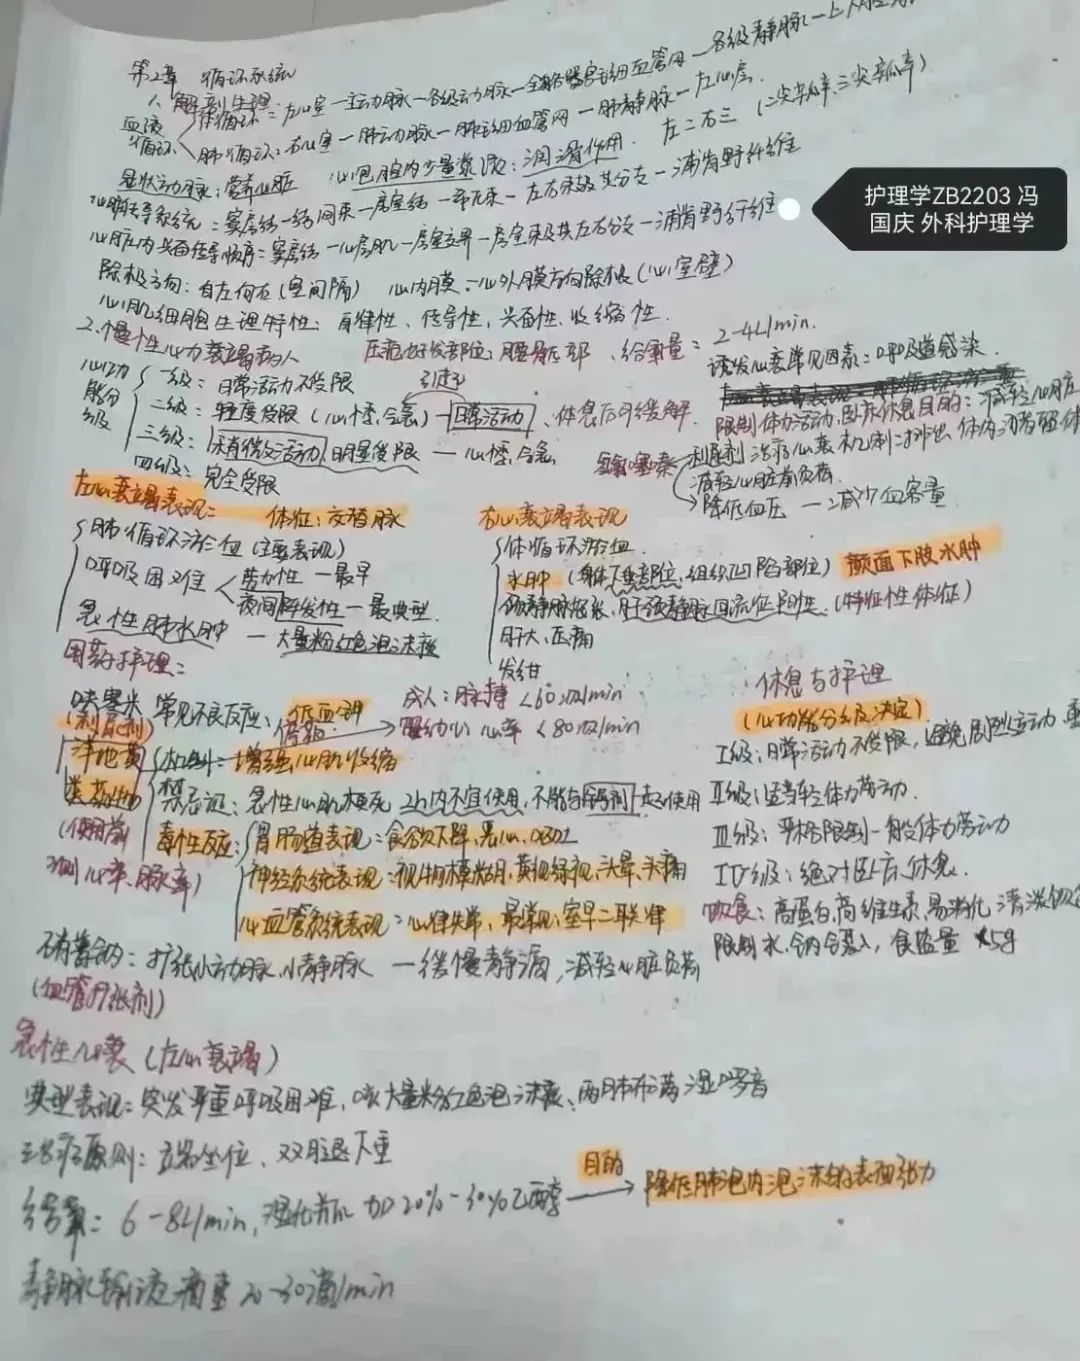 第2章 循环系统
1、解剖生理
血液循环
体循环：左心室—主动脉—各级动脉—全身各器官毛细血管网—各级静脉—上
肺循环：右心室—肺动脉—肺毛细血管网—肺静脉—左心房.
左二右三（二尖瓣、三尖瓣）
冠状动脉：营养心脏 心包腔内少量浆液：润滑作用.
心脏传导系统：窦房结—结间束—房室结—希氏束—左右束及其分支—浦肯野纤维
心脏内兴奋传导顺序：窦房结—心房肌—房室交界—房室束及其左右分支—浦肯野纤维
护理学ZB2203 冯
国庆 外科护理学
除极方向：自左向右（室间隔） 心内膜→心外膜方向除极（心室壁）
心肌细胞生理特性：自律性、传导性，兴奋性、收缩性.
2.慢性心力衰竭病人 压疮好发部位：腰骶部、给氧量：2-4L/min.
诱发心衰常见因素：呼吸道感染.
心功能分级
一级：日常活动不受限
二级：轻度受限（心悸、气急）引起 日常活动、休息后可缓解.
三级：稍微活动，明显受限—心悸、气急
四级：完全受限
限制体力活动，卧床休息目的：减轻心脏
利尿剂 治疗心衰机制：排出体内潴留体
减轻心脏前负荷
降低血压—减少血容量
左心衰竭表现： 体征：交替脉
肺循环淤血（主要表现）
呼吸困难
劳力性—最早
夜间阵发性—最典型.
急性肺水肿—大量粉红色泡沫痰
右心衰竭表现
体循环淤血
水肿（身体下垂部位、组织凹陷部位）颜面下肢水肿
颈静脉怒张、肝颈静脉回流征阳性.（特征性体征）
肝大、压痛
发绀
用药护理：
呋塞米 常见不良反应：低血钾
(利尿剂)
停药→
成人：脉搏<60次/min
婴幼儿 心率<80次/min
洋地黄类药物
(使用前测心率、脉率)
机制—增强心肌收缩
禁忌证：急性心肌梗死 24h内不宜使用，不能与钙剂一起使用
毒性反应：
胃肠道表现：食欲下降、恶心、呕吐
神经系统表现：视物模糊、黄视绿视、头晕、头痛
心血管系统表现：心律失常，最常见：室早二联律
休息与护理
（心功能分级决定）
I级：日常活动不受限，避免剧烈运动、重
Ⅱ级：适当轻体力劳动.
Ⅲ级：严格限制一般体力劳动
IV级：绝对卧床休息.
饮食：高蛋白、高维生素、易消化 清淡饮食
限制水、钠摄入，食盐量<5g
硝普钠：扩张小动脉、小静脉—缓慢静滴，减轻心脏负荷
(血管扩张剂)
急性心衰（左心衰竭）
典型表现：突发严重呼吸困难，咳大量粉红色泡沫痰、两肺布满湿啰音
治疗原则：立端坐位、双腿下垂
给氧：6-8L/min，湿化瓶加20%-30%乙醇 目的→降低肺泡内泡沫的表面张力
静脉输液滴速20-30滴/min